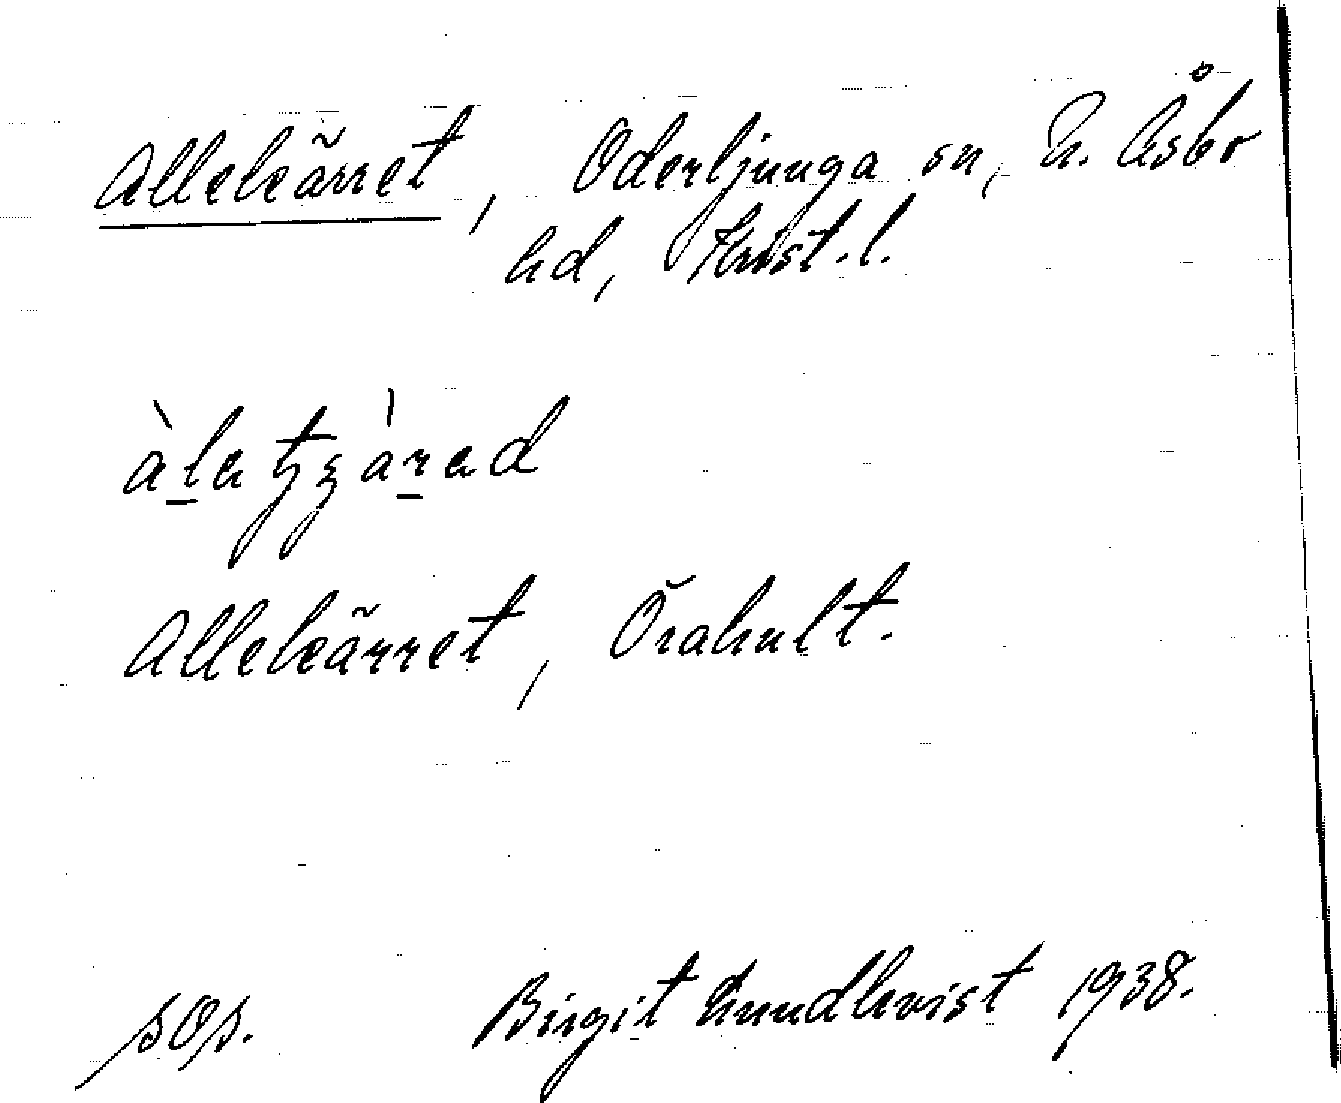 Allekärret, Oderljunga sn, N. Åsbo
hd, Krist. l.
Allekärret, Örahult.
sOs. Birgit Lundkvist 1938.